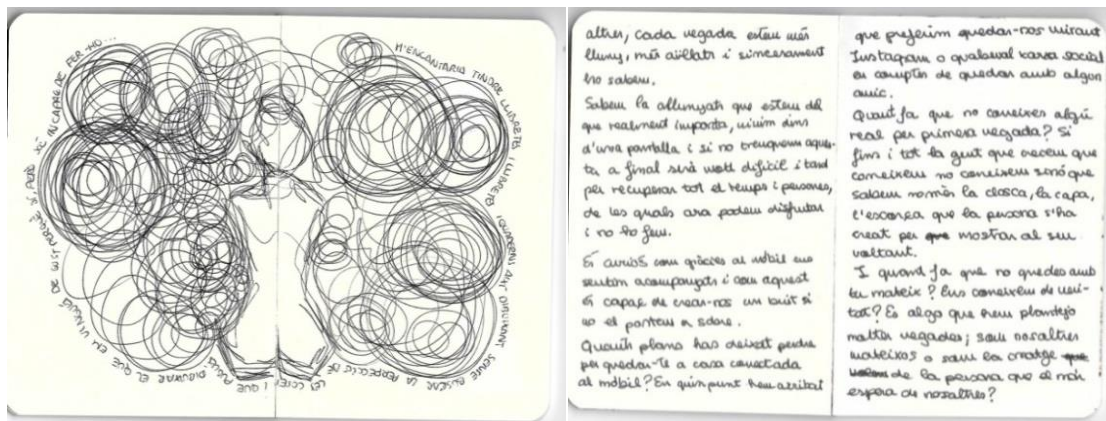 M'ENCANTARIA TINDRE LLIBRETES I LLIBRETES I QUADERNS D'ART DIBUIXANT SENSE BUSCAR LA PERFECCIÓ DE LES COSES I QUE PUGUI DIBUIXAR EL QUE EM VINGUI DE GUST PERQUÈ SÍ, PERÒ SÓC INCAPAÇ DE FER-HO...
altres, cada vegada estem més
lluny, més aïllats i sincerament
ho sabem.
Sabem la allunyats que estem del
que realment importa, vivim dins
d'una pantalla i si no trenquem aques-
ta, a final serà molt difícil i tard
per recuperar tot el temps i persones,
de les quals ara podem disfrutar
i no ho fem.
És curiós com gràcies al mòbil ens
sentim acompanyats i com aquest
és capaç de crear-nos un buit si
no el portem a sobre.
Quants plans has deixat perdre
per quedar-te a casa conectada
al mòbil? En quin punt hem arribat
que preferim quedar-nos mirant
Instagram o qualsevol xarxa social
en comptes de quedar amb algun
amic.
Quant fa que no coneixes algú
real per primera vegada? Si
fins i tot la gent que creiem que
coneixem no coneixem sinó que
sabem només la closca, la capa,
l'escorça que la persona s'ha
creat per mostrar al seu
voltant.
I quand fa que no quedes amb
tu mateix? Ens coneixem de veri-
tat? És algo que hem plantejo
moltes vegades; som nosaltres
mateixos o som la imatge
de la persona que el món
espera de nosaltres?